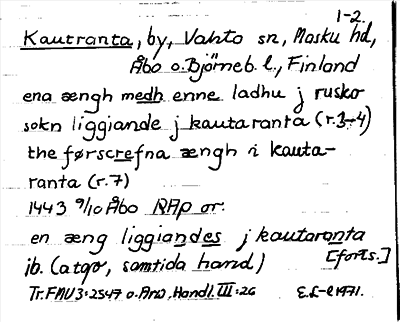 1-2.
Kautranta, by, Vahto sn, Masku hd,
Åbo o. Björneb. l., Finland
ena ængh medh enne ladhu j rusko
sokn liggiande j kautaranta (r.3-4)
the førscrefna ængh i kauta-
ranta (r.7)
1443 9/10 Åbo RAp or.
en æng liggiandes j kautaranta
ib. (atgo, samtida hand) [forts.]
Tr. FMU 3:2547 o. Arw. Handl. III:26 E.L-l 1971.